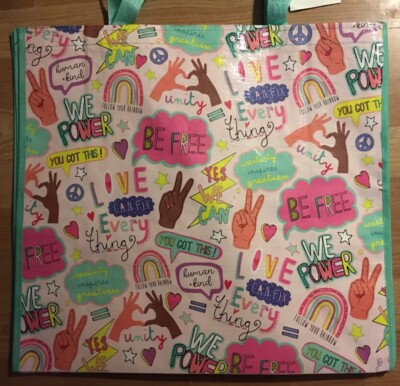 Every
thing
YES
WE
CAN
creativity
inspires
greatness
WE
POWER
human
+kind
FOLLOW YOUR RAINBOW
unity
LOVE
CAN FIX
Every
thing
FOLLOW YOUR RAINBOW
YOU GOT THIS !
WE
POWER
BE FREE
unity
YOU GOT THIS !
LOVE
CAN FIX
Every
thing
YES
WE
CAN
creativity
inspires
greatness
BE FREE
unity
BE FREE
YOU GOT THIS !
WE
POWER
creativity
inspires
greatness
human
+kind
LOVE
CAN FIX
Every
thing
FOLLOW YOUR RAINBOW
WE
POWER
YES
WE
CAN
unity
BE FREE
YOU GOT THIS !